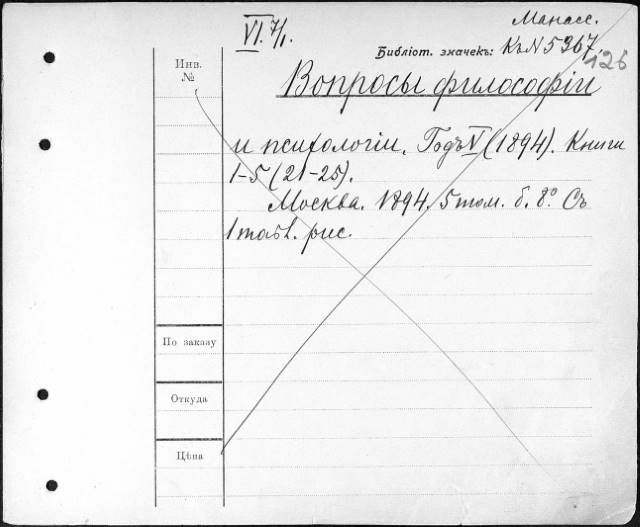 VI. 7/1.
Манасс.
Библіот. значекъ: Къ N 5367
126
Инв.
№
Вопросы философіи
и психологіи. Годъ V (1894). Книги
1-5 (21-25).
Москва. 1894. 5 том. б. 8º. Съ
1 табл. рис.
По заказу
Откуда
Цѣна